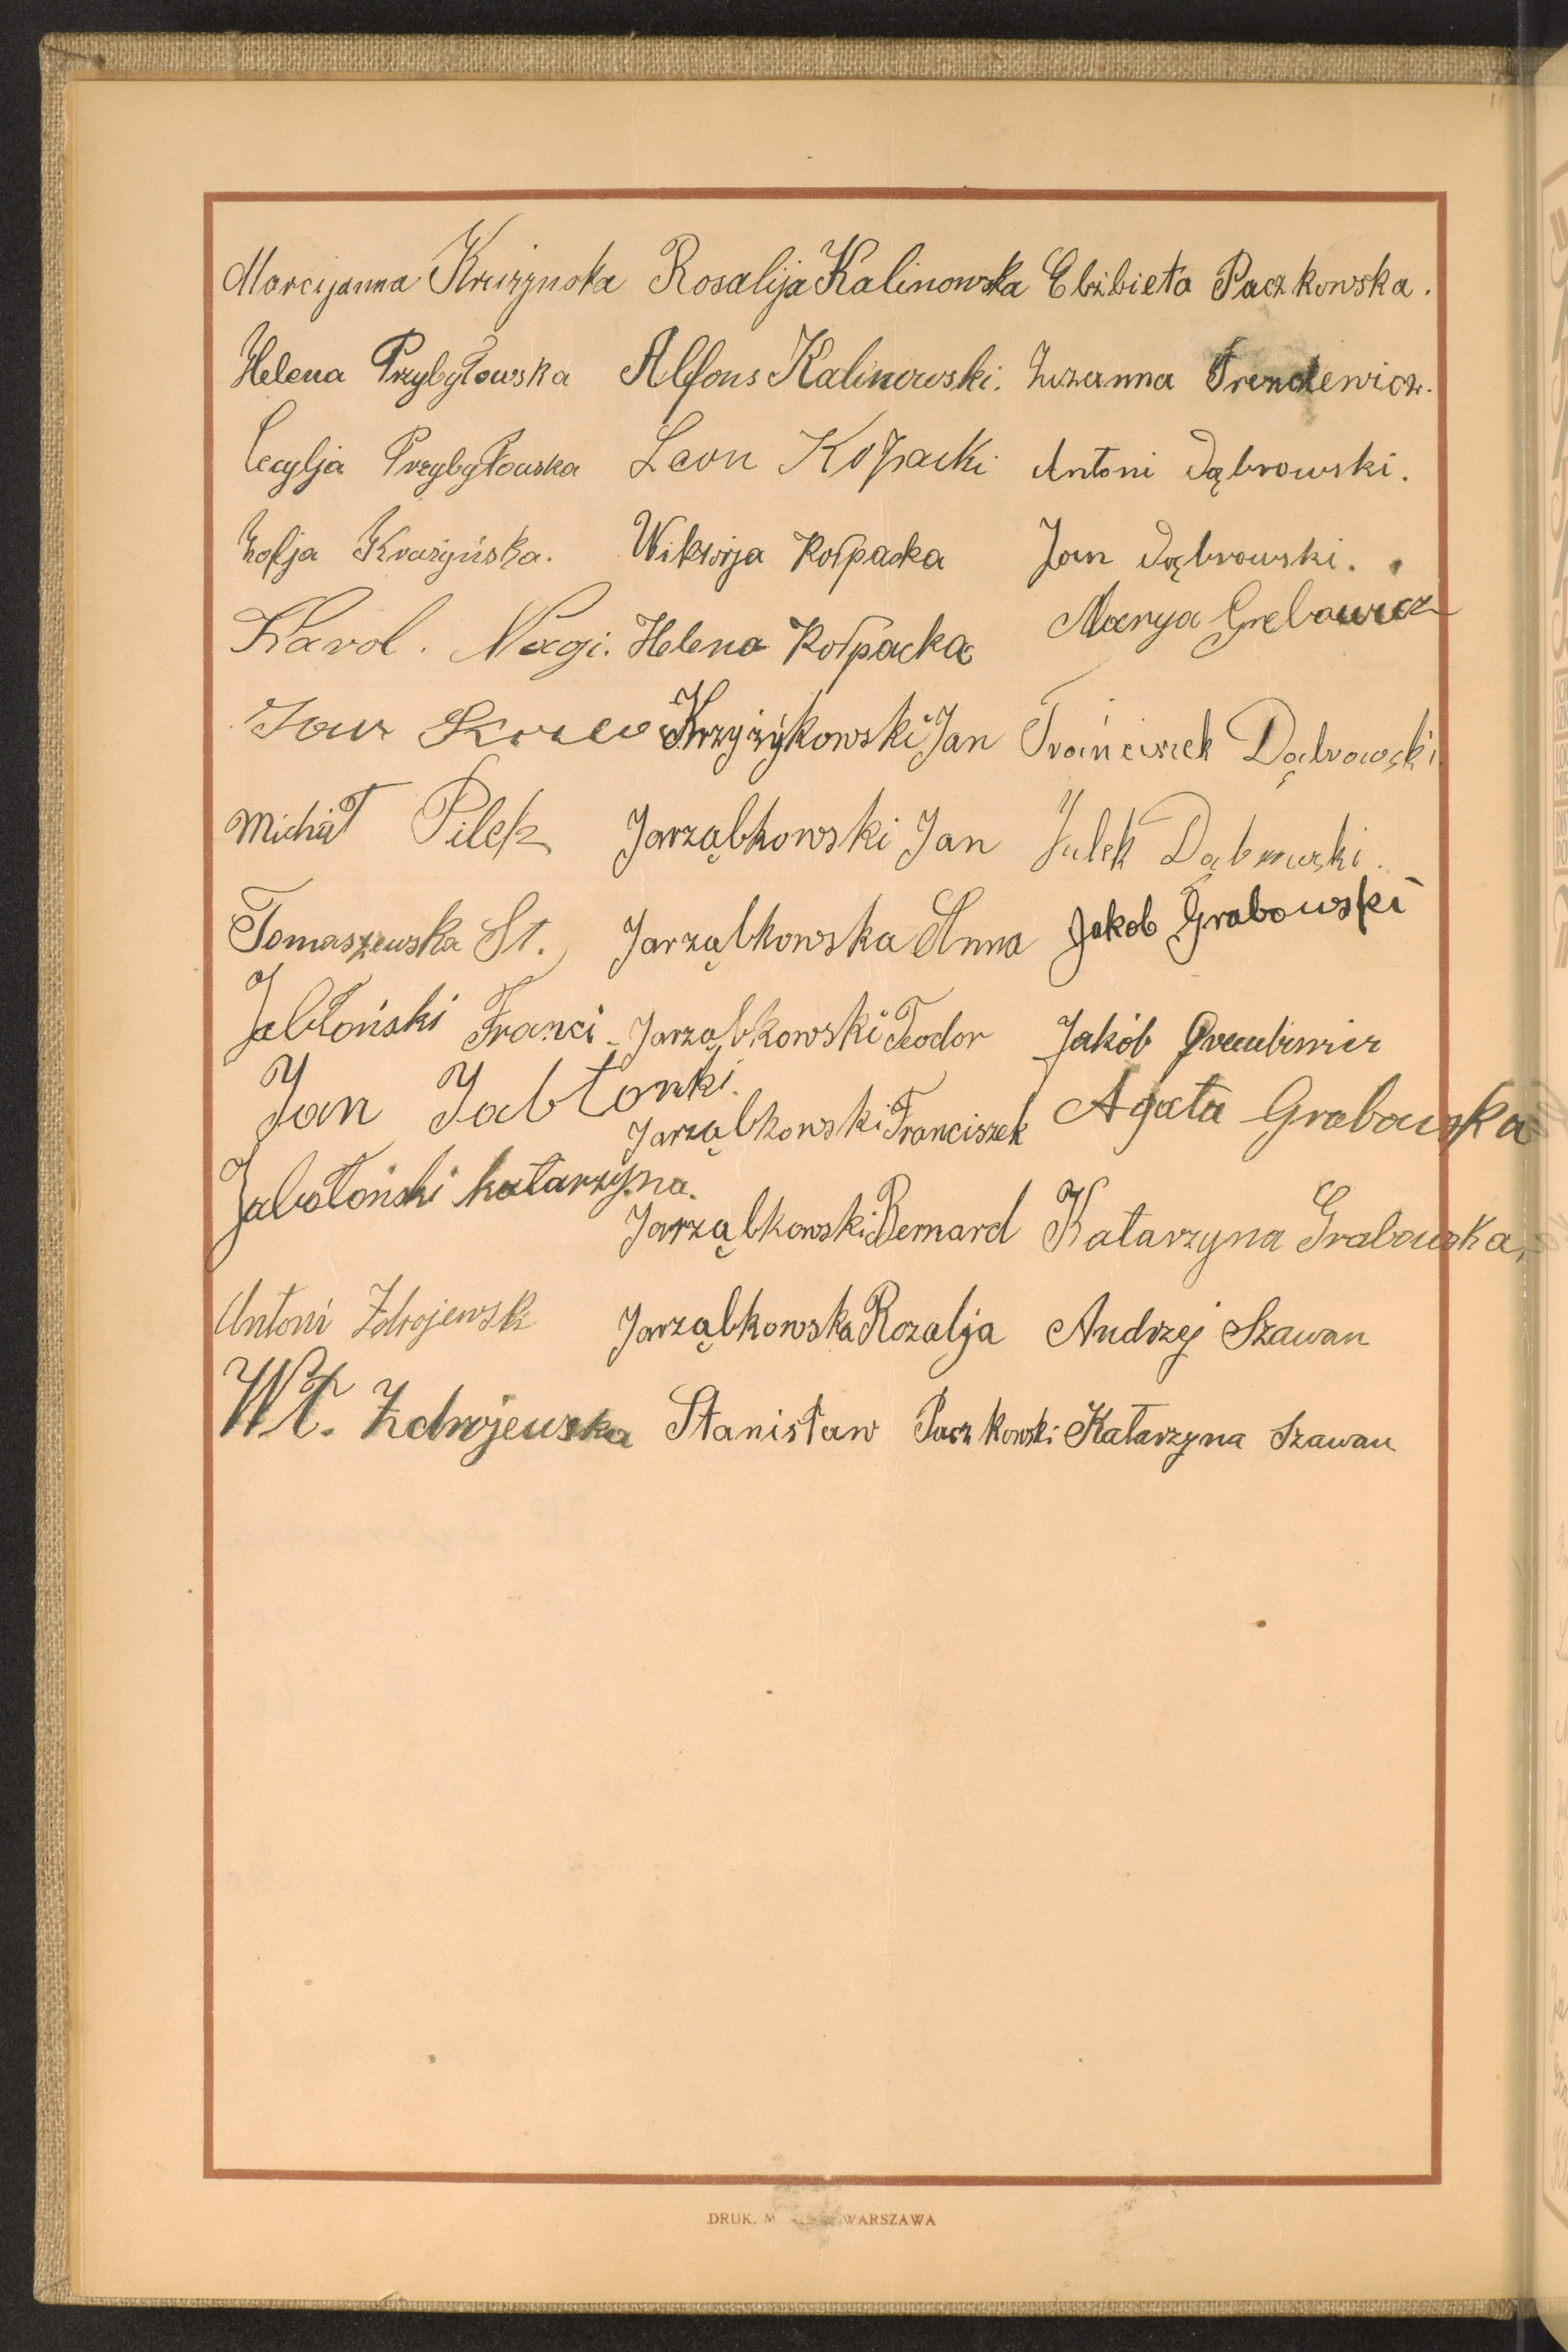 Marcyjanna Kruzynska Rosalija Kalinowska Elżbieta Paczkowska.
Helena Przybyłowska Alfons Kalinowski. Zuzanna
Cecylja Przybyłowska Leon Kołpacki Antoni Dąbrowski.
Zofja Kražyńska. Wiktorja Kołpacka Jan Dąbrowski.
Karol. Nagi. Helena Kołpacka Marya Grebowicz
Jan Krzyżykowski Jan Frańciszek Dąbrowski
Michał Pilek Jarząbkowski Jan Julek Dąbrowski.
Tomaszewska St. Jarząbkowska Anna Jakob Grabowski
Jabłoński Franci. Jarząbkowski Teodor Jakób
Jan Jabłonki. Jarząbkowski Franciszek Agata Grabowska
Jabołoński katarzyna. Jarząbkowski Bernard Katarzyna Grabowska,
Antoni Zdrojewski Jarząbkowska Rozalja Andrzej Szawan
Wł. Zdrojewska Stanisław Paczkowski Katarzyna Szawan
DRUK. WARSZAWA